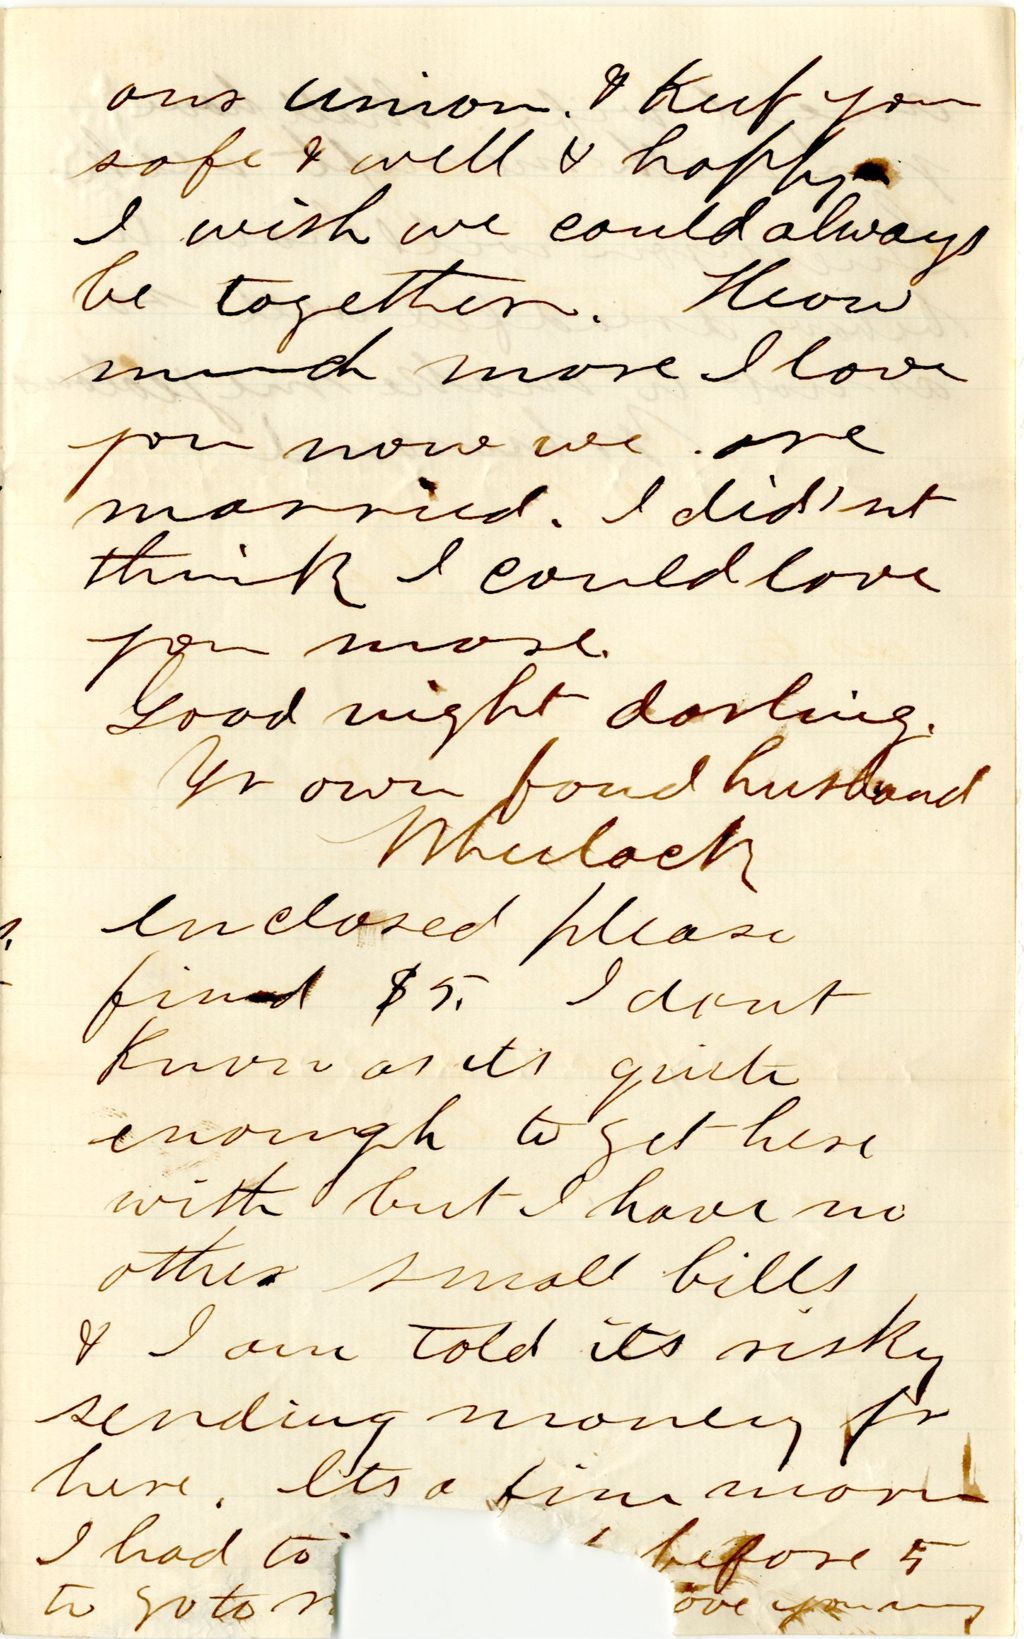 our union. & Keep you
safe & well & happy
I wish we could always
be together. How
much more I love
you now we are
married. I did'nt
think I could love
you more.
Good night darling.
Yr own fond husband
Wheelock
enclosed please
find $5. I dont
Know as its quite
enough to get here
with but I have no
other small bills
& I am told its risky
sending money fr
here. Its a fine morn
I had to before 5
to go to love you my